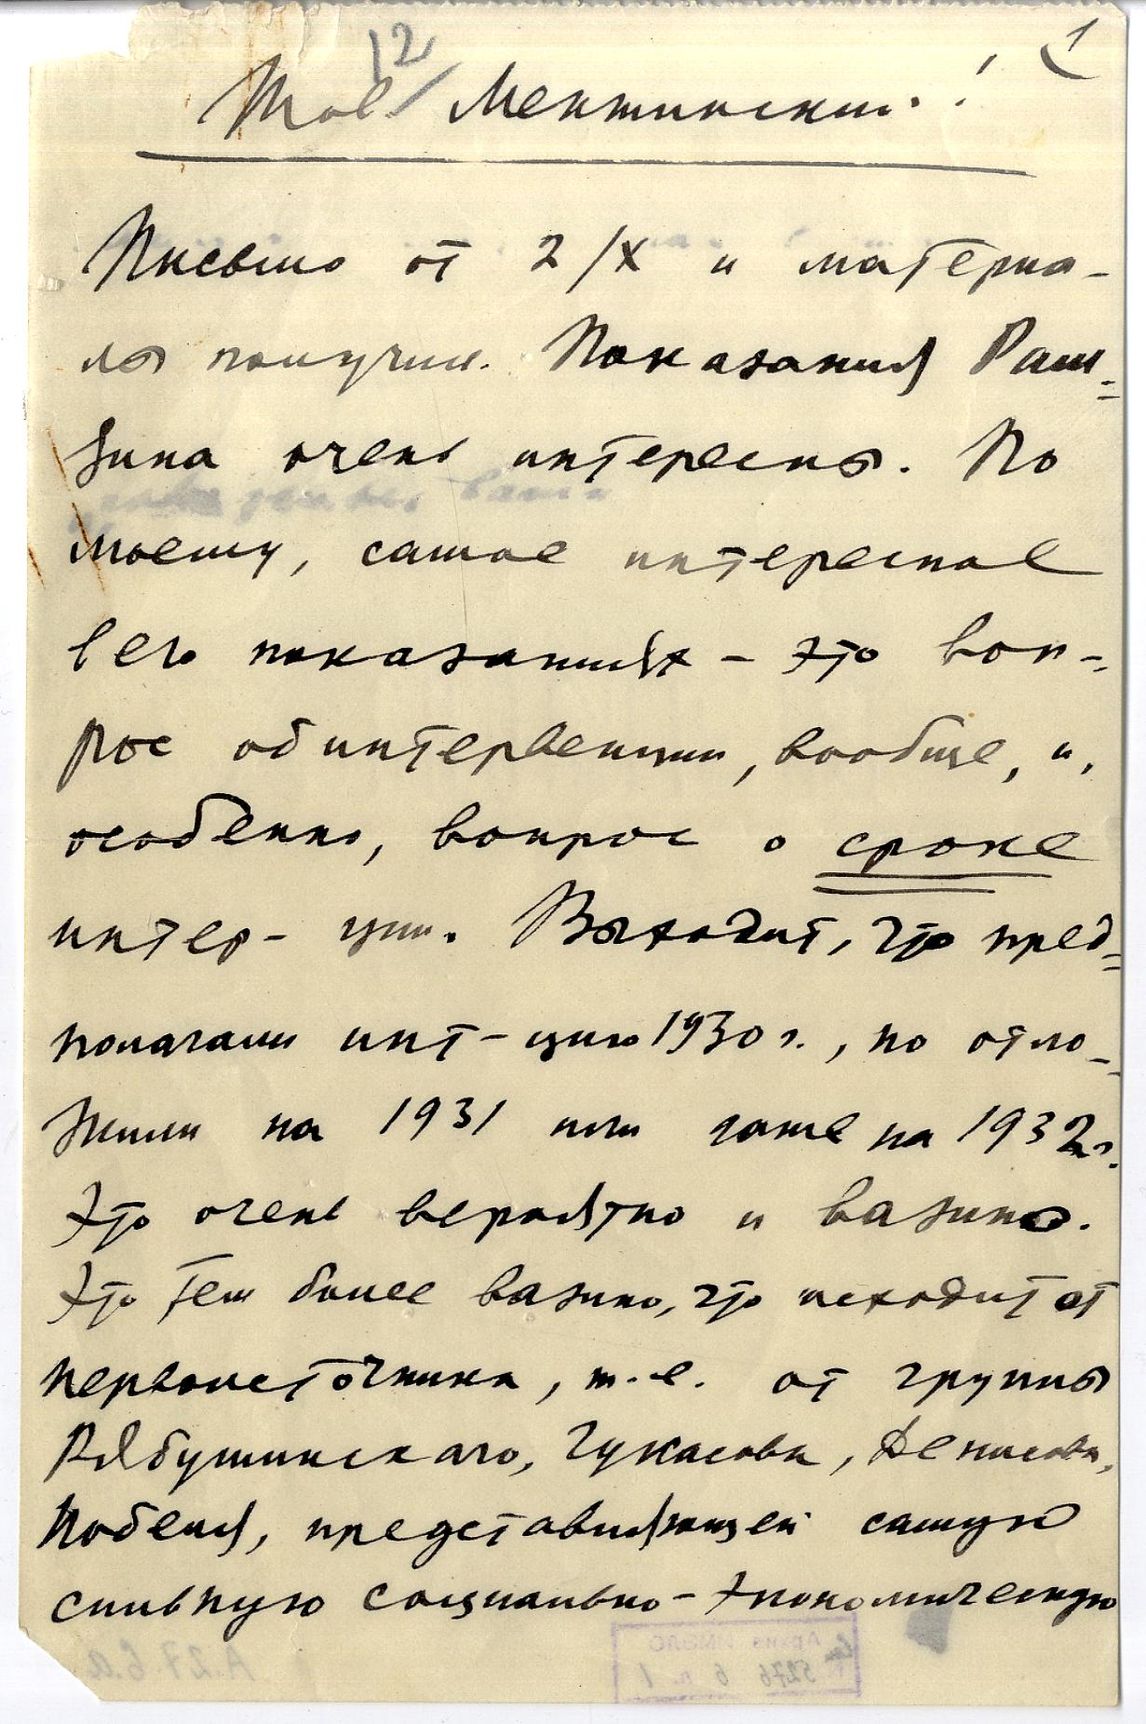 12
1
Тов. Менжинский!
Письмо от 2/X и материа-
лы получил. Показания Рам-
зина очень интересны. По
моему, самое интересное
в его показаниях – это воп-
рос об интервенции, вообще, и,
особенно, вопрос о сроке
интер-ции. Выходит, что пред-
полагали инт-цию 1930 г., но отло-
жили на 1931 или даже на 1932 г.
Это очень вероятно и важно.
Это тем более важно, что исходит от
первоисточника, т.е. от группы
Рябушинского, Гукасова, Денисова,
Нобеля, представляющей самую
сильную социально-экономическую